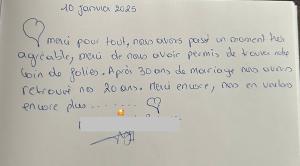 10 janvier 2025
merci pour tout, nous avons passé un moment très
agréable, merci de nous avoir permis de trouver notre
coin de folies. Après 30 ans de mariage nous avons
retrouvé nos 20 ans. Merci encore, nos en voulons
encore plus .......